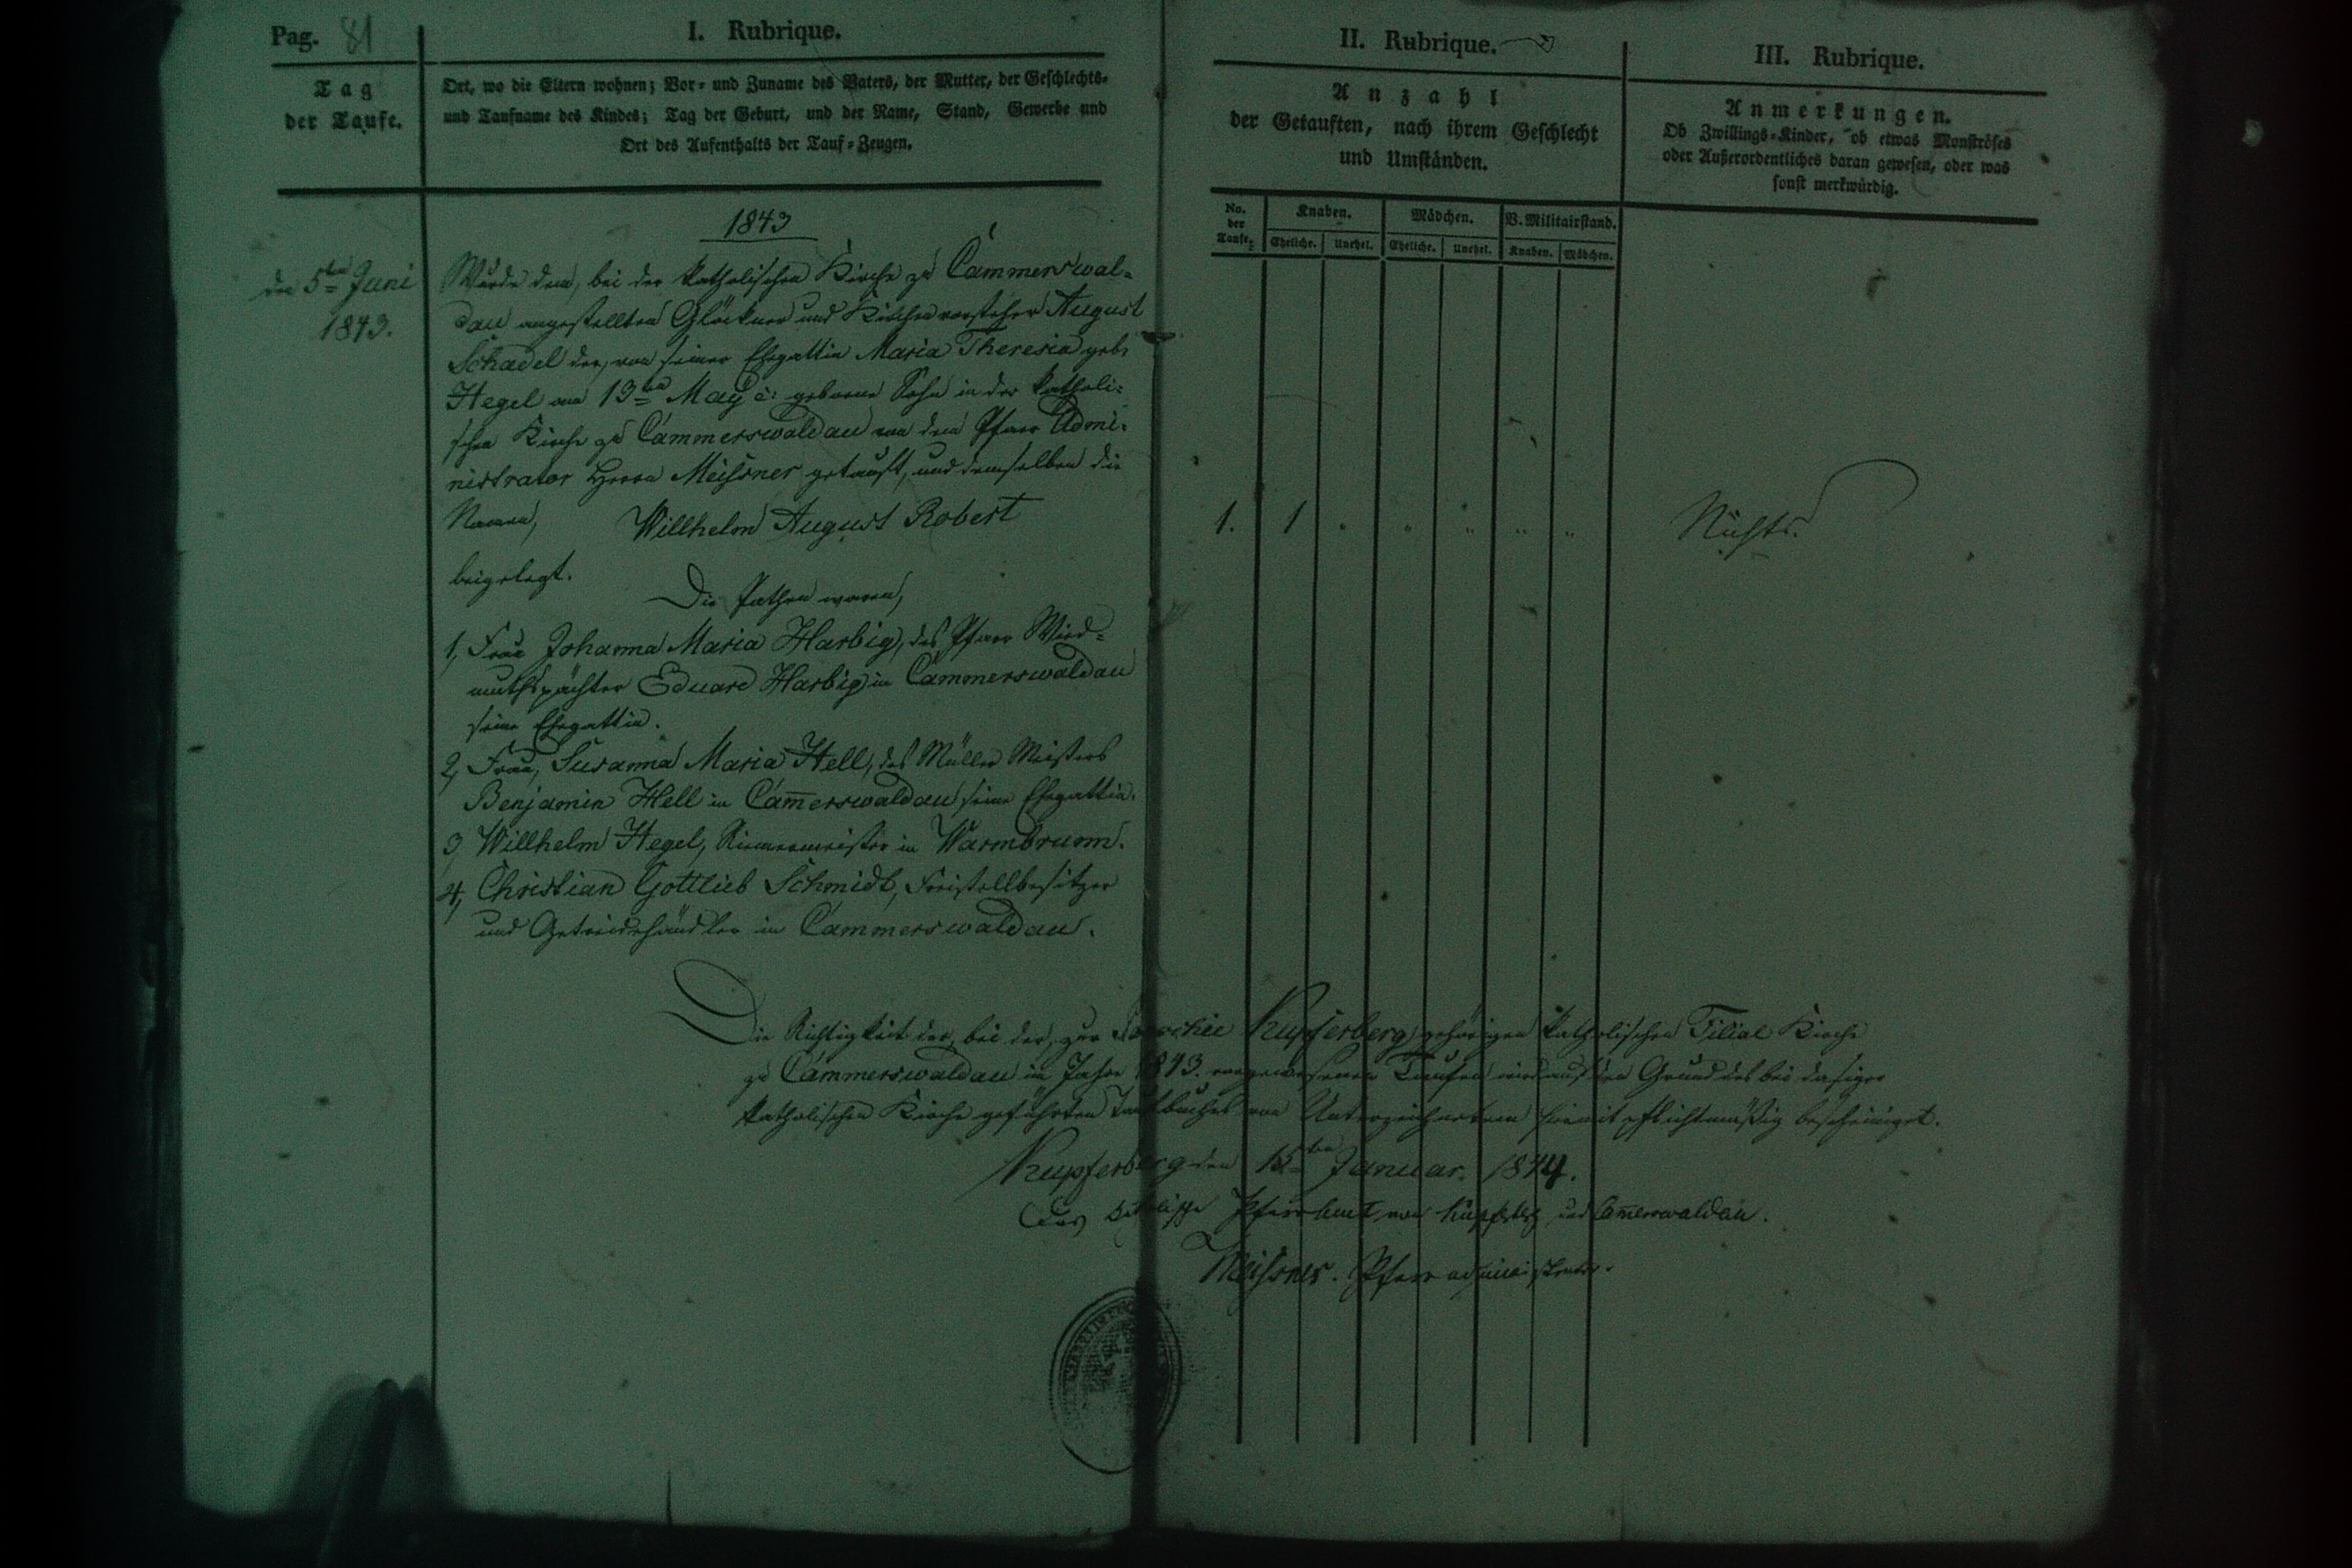 Pag. 81
I. Rubrique.
Tag
der Taufe.
Ort, wo die Eltern wohnen; Vor- und Zuname des Vaters, der Mutter, der Geschlechts-
und Taufname des Kindes; Tag der Geburt, und der Name, Stand, Gewerbe und
Ort des Aufenthalts der Tauf-Zeugen.
1843
den 5ten Juni
1843.
Wurde dem, bei der katholischen Kirche zu Cammerswal-
dau angestellten Glöckner und Kirchenvorsteher August
Schadel der, von seiner Ehegattin Maria Theresia geb.
Hegel am 13ten May c: geborne Sohn in der katholi-
schen Kirche zu Cammerswaldau von dem Pfarr Admi-
nistrator Herrn Meissner getauft, und demselben die
Namen, Willhelm August Robert
beigelegt.
Die Pathen waren,
1, Frau Johanna Maria Harbig, des Pfarr Wied-
muthspächter Eduard Harbig in Cammerswaldau
seine Ehegattin.
2, Frau, Susanna Maria Hell, des Müller Meisters
Benjamin Hell in Cam̅erswaldau seine Ehegattin.
3, Willhelm Hegel, Riemermeister in Warmbrunn.
4, Christian Gottlieb Schmidt, Freistellbesitzer
und Getreidehändler in Cammerswaldau.
II. Rubrique.
Anzahl
der Getauften, nach ihrem Geschlecht
und Umständen.
No.
der
Taufe.
Knaben. Mädchen. V. Militairstand.
Eheliche. Unehel. Eheliche. Unehel. Knaben. Mädchen.
1. 1 " " " " "
III. Rubrique.
Anmerkungen.
Ob Zwillings-Kinder, ob etwas Monströses
oder Außerordentliches daran gewesen, oder was
sonst merkwürdig.
Nichts.
Die Richtigkeit der, bei der, zur Parochie Kupferberg gehörigen katholischen Filial Kirche
zu Cammerswaldau im Jahre 1843. vorgewesenen Taufen wird auf den Grund des bei dasiger
katholischen Kirche geführten Taufbuches von Unterzeichnetem hiemit pflichtmäßig bescheiniget.
Kupferberg den 15ten Januar. 1844.
Das katholische Pfarramt von Kupferberg und Cam̅erswaldau.
Meissner. Pfarradministrator.